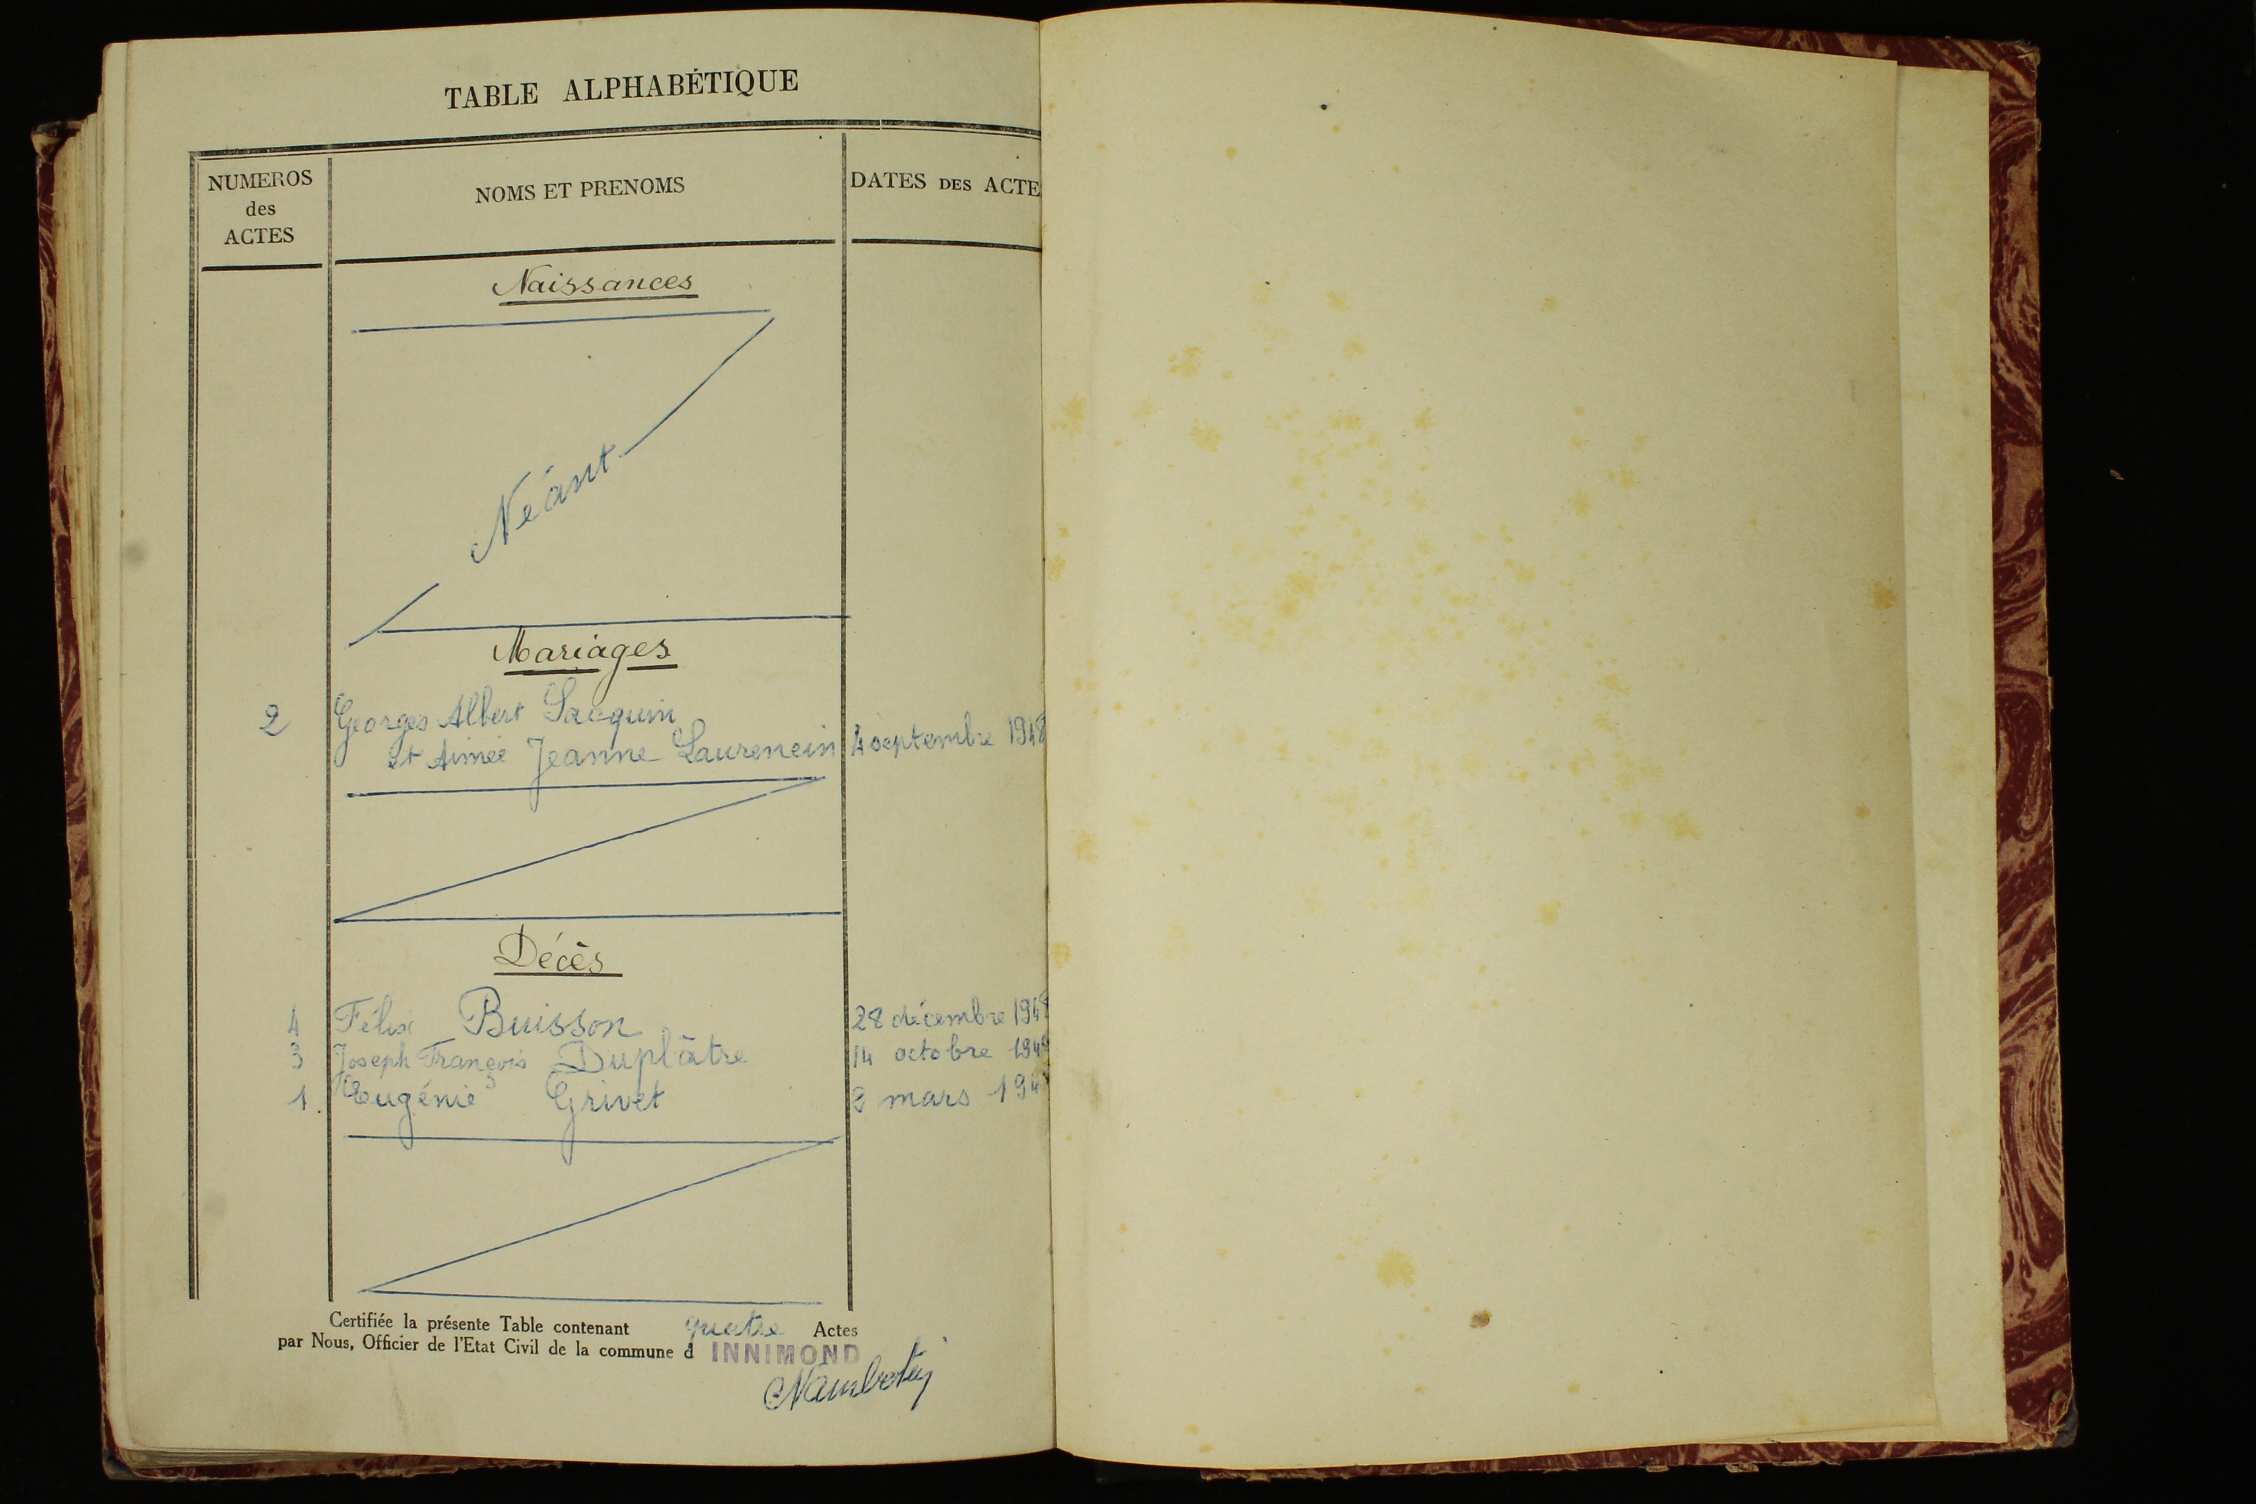 TABLE ALPHABÉTIQUE
NUMEROS des ACTES
NOMS ET PRENOMS
DATES DES ACTE
Naissances
Néant
Mariages
2 Georges Albert Jacquin
et Aimée Jeanne Laurencin 4 septembre 1948
Décès
4 Félix Buisson 28 décembre 1948
3 Joseph François Duplâtre 14 octobre 1948
1 Eugénie Grivet 3 mars 194
Certifiée la présente Table contenant quatre Actes
par Nous, Officier de l'Etat Civil de la commune d INNIMOND